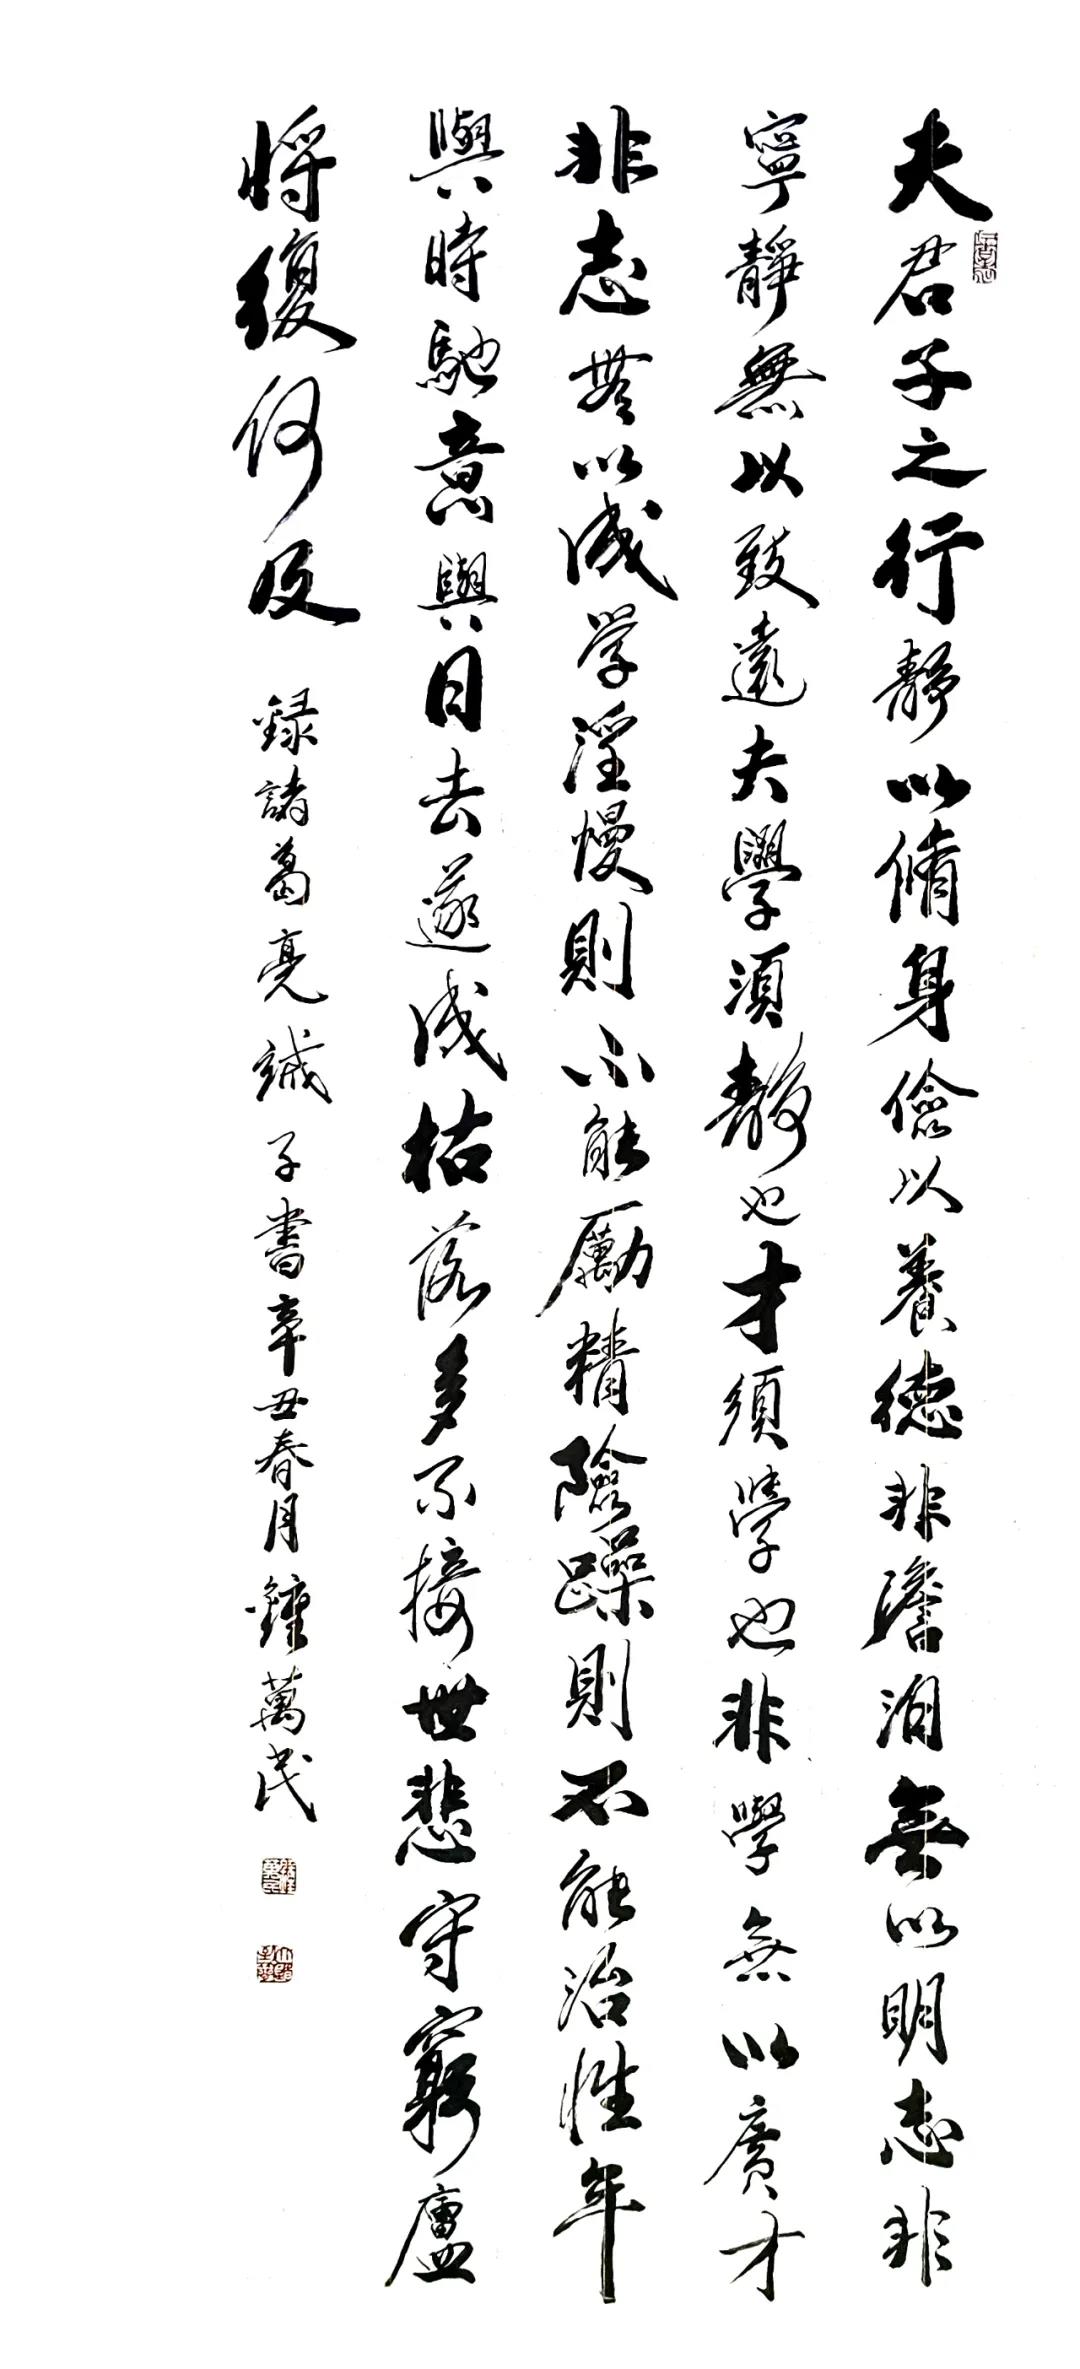 夫君子之行靜以脩身儉以養德非澹泊無以明志非
寧靜無以致遠夫學須靜也才須學也非學無以廣才
非志無以成学淫慢則不能勵精險躁則不能治性年
與時馳意與日去遂成枯落多不接世悲守窮廬
將復何及 録諸葛亮誡子書辛丑春月鍾萬民